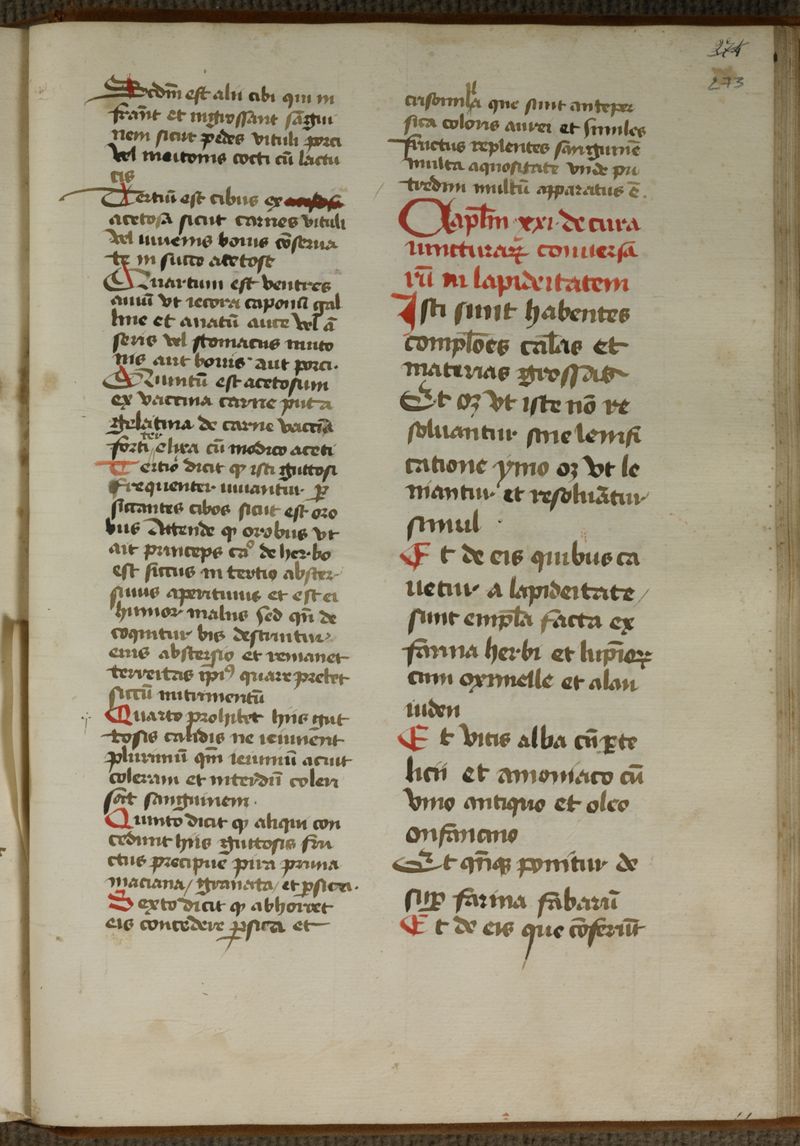 274
273
Secdm̄ est alii cibi qui in
frāt et ingrossant sāgui
nem sicut pedes vituli porci
vel moltonis cocti cū lactu
cis
Tertiū est cibus ex
acetosa sicut carnes vituli
vel iuvenis bovis cōserva
te in succo acetose
Quartum est ventres
aviū vt iecora caponū gal
line et anatū auce vel ā
seris vel stomacus muto
nis aut bovis aut porci.
Quintū est acetosum
ex vaccina carne puta
gelatina de carne vaccīa
forti ter elixa cū modico aceti
Tertio dicit ꝙ isti guttosi
frequenter utuantur ꝑ
siccantes cibos sicut est oro
bus Attende ꝙ orobus vt
ait princeps caº de herbo
est siccus in tertio abster
sivus aperitivus et est ei
humor malus sed qn̄ de
coquitur bis destruitur
eius abstersio et remanet
terreitas ip̄iꝰ quare prebet
siccū nutrimentū
Quarto prohibet hiis gut
tosis calidis ne ieiunēnt
plurimū qm̄ ieiuniū acuit
coleram et interdiū colen
sāt sanguinem.
Quinto dicit ꝙ aliqui con
cedunt hiis guttosis fru
ctus precipue pira pruna
maciana/ granata/ et ꝑsica.
Sexto dicit ꝙ abhorret
eis concedere ꝑsica et
crisomila que sunt anteper
sica coloris aurei et similes
fructus replentes sanguinē
multa aquositate vnde pu
tredini multū apparatus ē.
Cap̄lm xxi de cura
iuncturaꝝ conversa
rū in lapideitatem
Isti sunt habentes
compl̄ōes cal̄as et
materias grossas
Et oꝫ vt iste nō re
soluantur sine lenifi
catione ymo oꝫ vt le
niantur et resoluātur
simul
Et de eis quibus ca
uetur a lapideitate/
sunt empl̄a facta ex
farina herbi et lupīoꝝ
cum oximelle et alau
iuden
Et vitis alba cū ꝑte
licii et amoniaco cū
vino antiquo et oleo
onfancino
Et qn̄qꝫ ponitur de
suꝑ farina fabarū
Et de eis que cōferūt